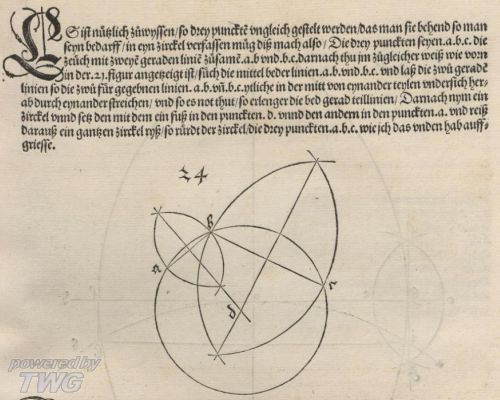 ES ist nützlich zůwyssen/ so drey punckte͞ vngleich gestelt werden/ das man sie behend so man
seyn bedarff/ in eyn zirckel verfassen müg diß mach also/ Die drey puncten seyen .a.b.c. die
zeüch mit zweye͞ geraden linie͞ zůsame͞ .a.b vnd .b.c. darnach thu jm zůgleicher weiß wie vorn
in der .23. figur angetzeigt ist/ sůch die mittel beder linien .a.b. vnd .b.c. vnd laß die zwů gerade͞
linien so die zwů für gegebnen linien .a.b. vn͞ .b.c. ytliche in der mitt von eynander teylen vndersich her-
ab durch eynander streichen/ vnd so es not thut/ so erlenger die bed gerad teillinien/ Darnach nym ein
zirckel vnnd setz den mit dem ein fuß in den puncten .d. vnnd den andern in den puncten .a. vnd reiß
darauß ein gantzen zirckel ryß/ so rürdt der zirckel/ die drey puncten .a.b.c. wie jch das vnden hab auff-
griesse.
24
b
a
c
d
powered by
TWG